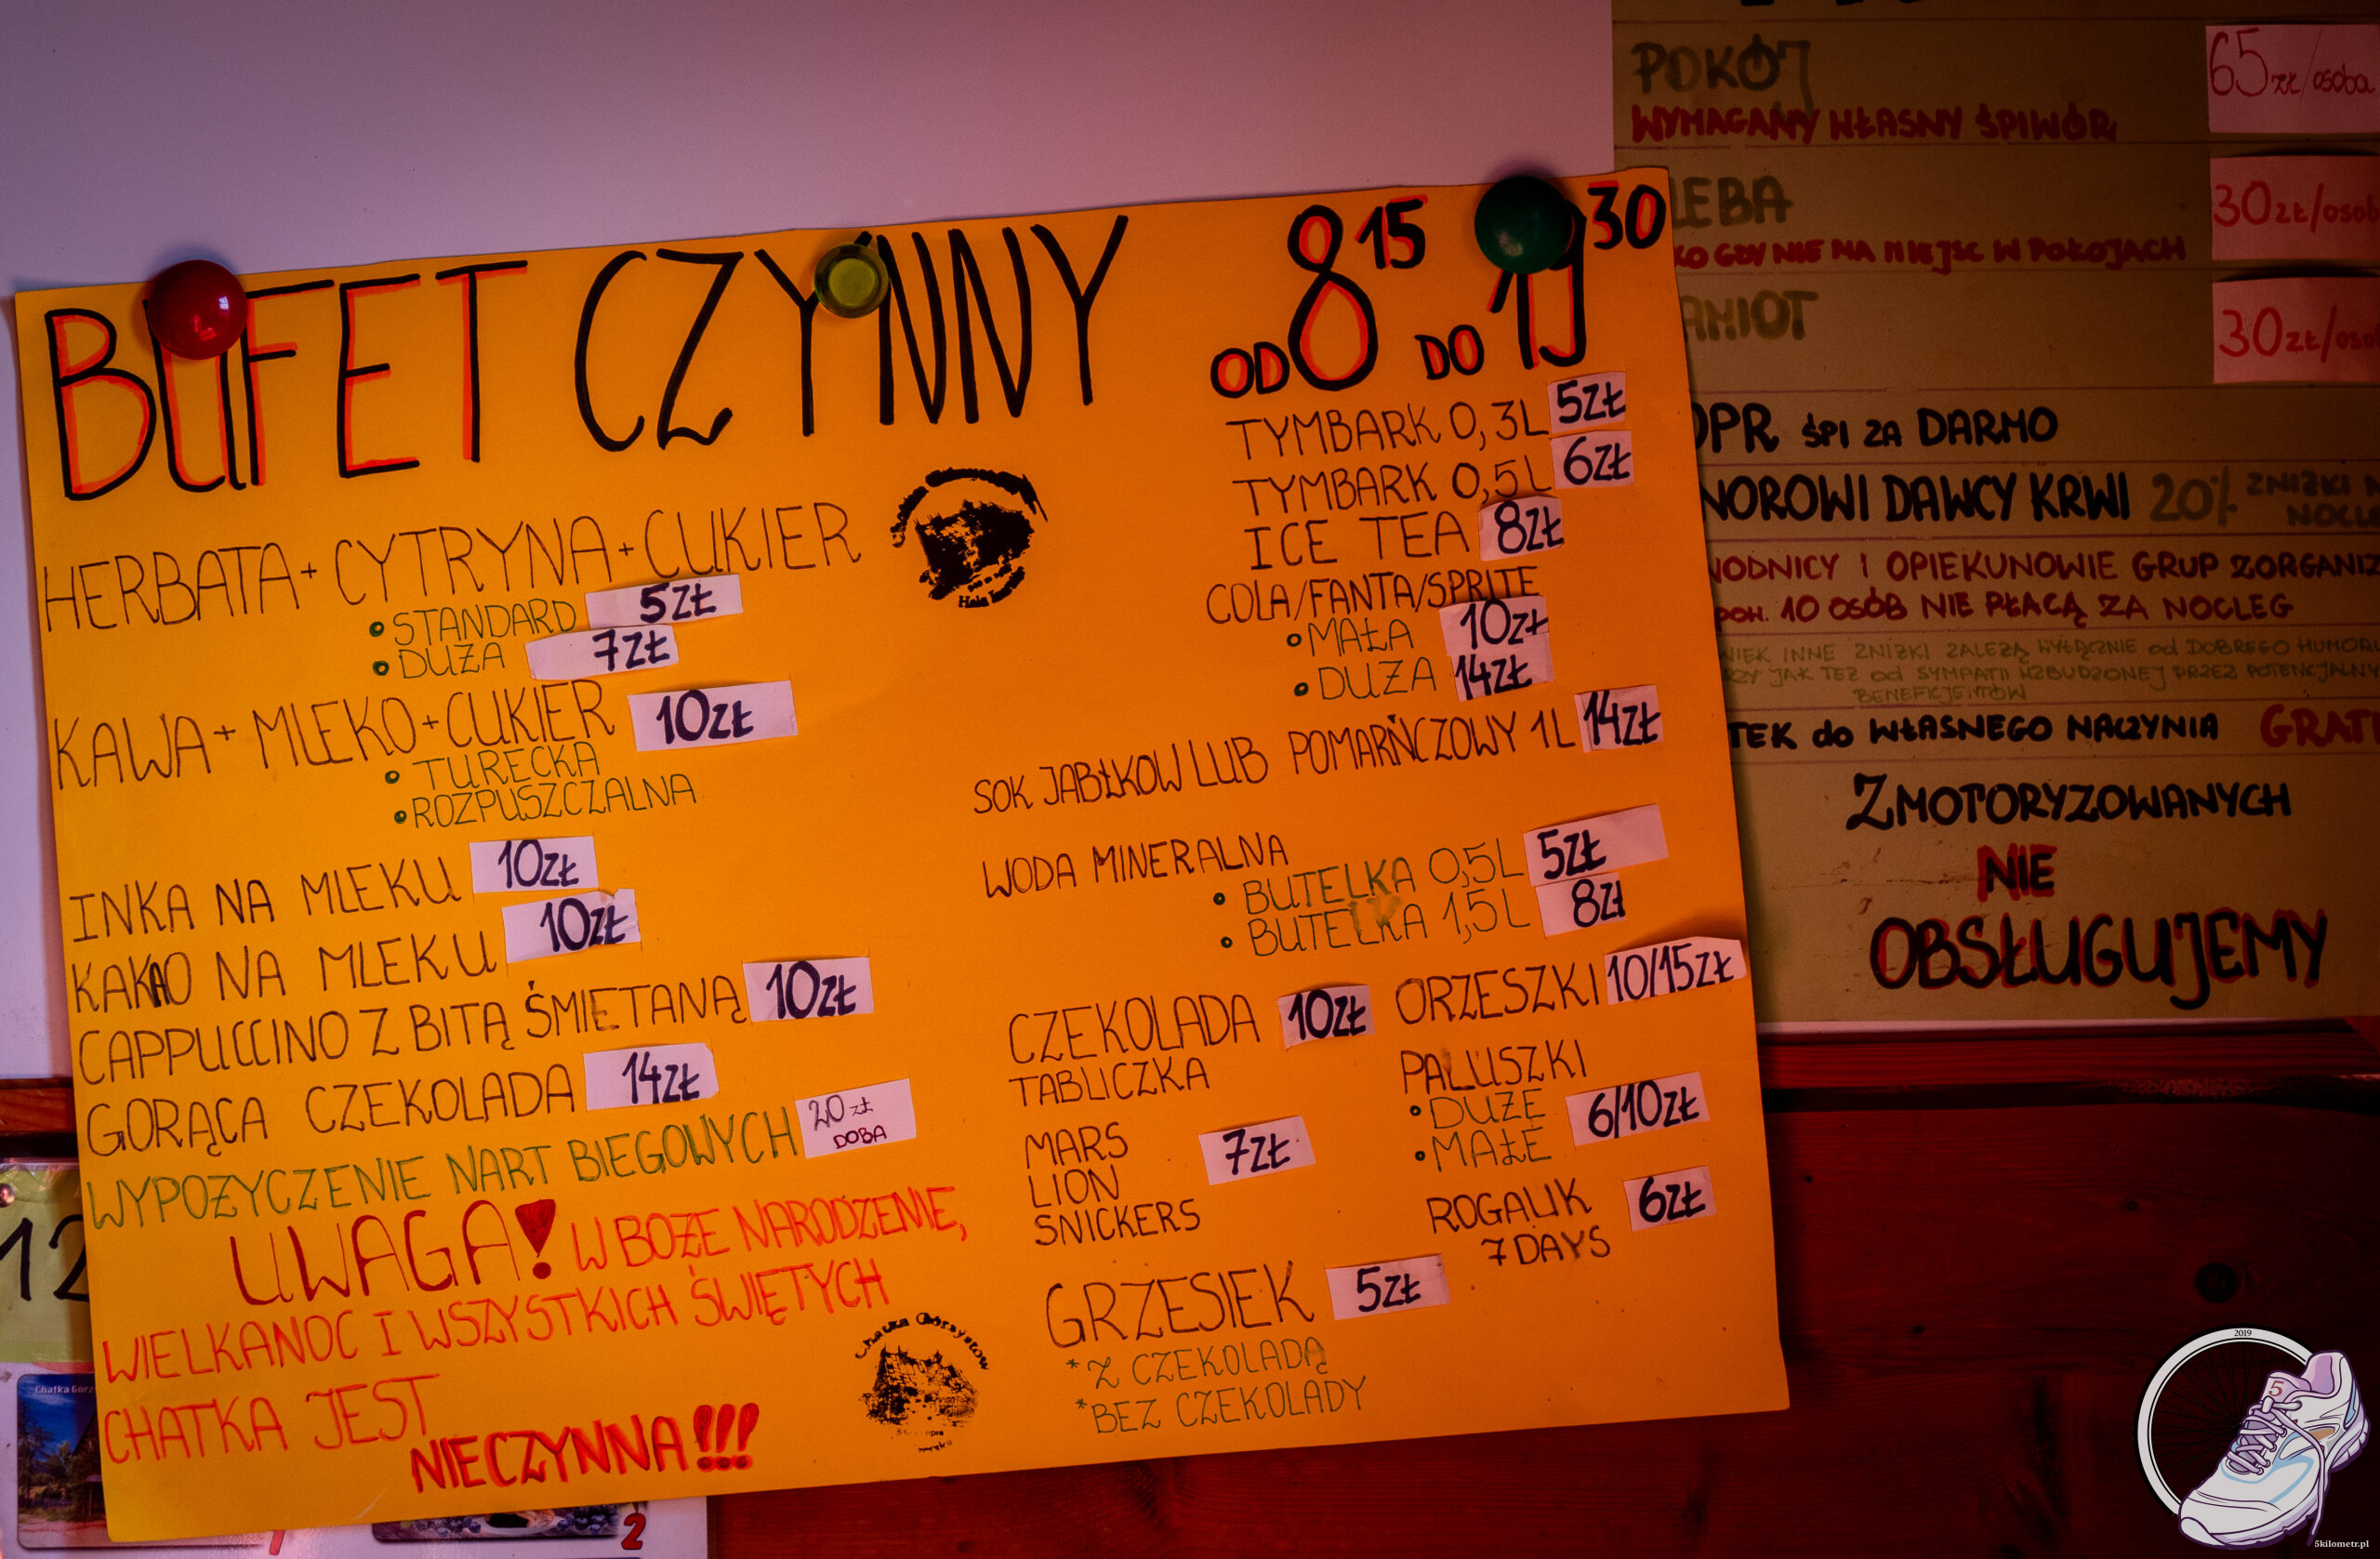 BUFET CZYNNY OD 8 15 DO 19 30
HERBATA + CYTRYNA + CUKIER
• STANDARD 5ZŁ
• DUŻA 7ZŁ
KAWA + MLEKO + CUKIER 10ZŁ
• TURECKA
• ROZPUSZCZALNA
INKA NA MLEKU 10ZŁ
KAKAO NA MLEKU 10ZŁ
CAPPUCCINO Z BITĄ ŚMIETANĄ 10ZŁ
GORĄCA CZEKOLADA 14ZŁ
WYPOŻYCZENIE NART BIEGOWYCH 20 zł
DOBA
UWAGA! W BOŻE NARODZENIE,
WIELKANOC I WSZYSTKICH ŚWIĘTYCH
CHATKA JEST
NIECZYNNA!!!
TYMBARK 0,3L 5ZŁ
TYMBARK 0,5L 6ZŁ
ICE TEA 8ZŁ
COLA/FANTA/SPRITE
• MAŁA 10ZŁ
• DUŻA 14ZŁ
SOK JABŁKOW LUB POMARŃCZOWY 1L 14ZŁ
WODA MINERALNA
• BUTELKA 0,5L 5ZŁ
• BUTELKA 1,5L 8Zł
CZEKOLADA 10ZŁ
TABLICZKA
MARS
LION 7ZŁ
SNICKERS
GRZESIEK 5ZŁ
*Z CZEKOLADĄ
*BEZ CZEKOLADY
ORZESZKI 10/15ZŁ
PALUSZKI
• DUŻE 6/10ZŁ
• MAŁE
ROGALIK 6ZŁ
7 DAYS
Chatka Górzystów
POKÓJ 65 zł/osoba
WYMAGANY WŁASNY ŚPIWÓR
LEBA 30 zł/osob
KO GDY NIE MA MIEJSC W POKOJACH
AMIOT 30 zł/oso
OPR ŚPI ZA DARMO
NOROWI DAWCY KRWI 20% ZNIŻKI N
NOCLE
WODNICY I OPIEKUNOWIE GRUP ZORGANIZ
POW. 10 OSÓB NIE PŁACĄ ZA NOCLEG
WIEK INNE ZNIŻKI ZALEŻĄ WYŁĄCZNIE od DOBREGO HUMORU
RZY JAK TEŻ od SYMPATII WZBUDZONEJ PRZEZ POTENCJALNY
BENEFICJENTÓW
TEK do WŁASNEGO NACZYNIA GRATI
ZMOTORYZOWANYCH
NIE
OBSŁUGUJEMY
12
Chatka Górz
2
2019
5
5kilometr.pl